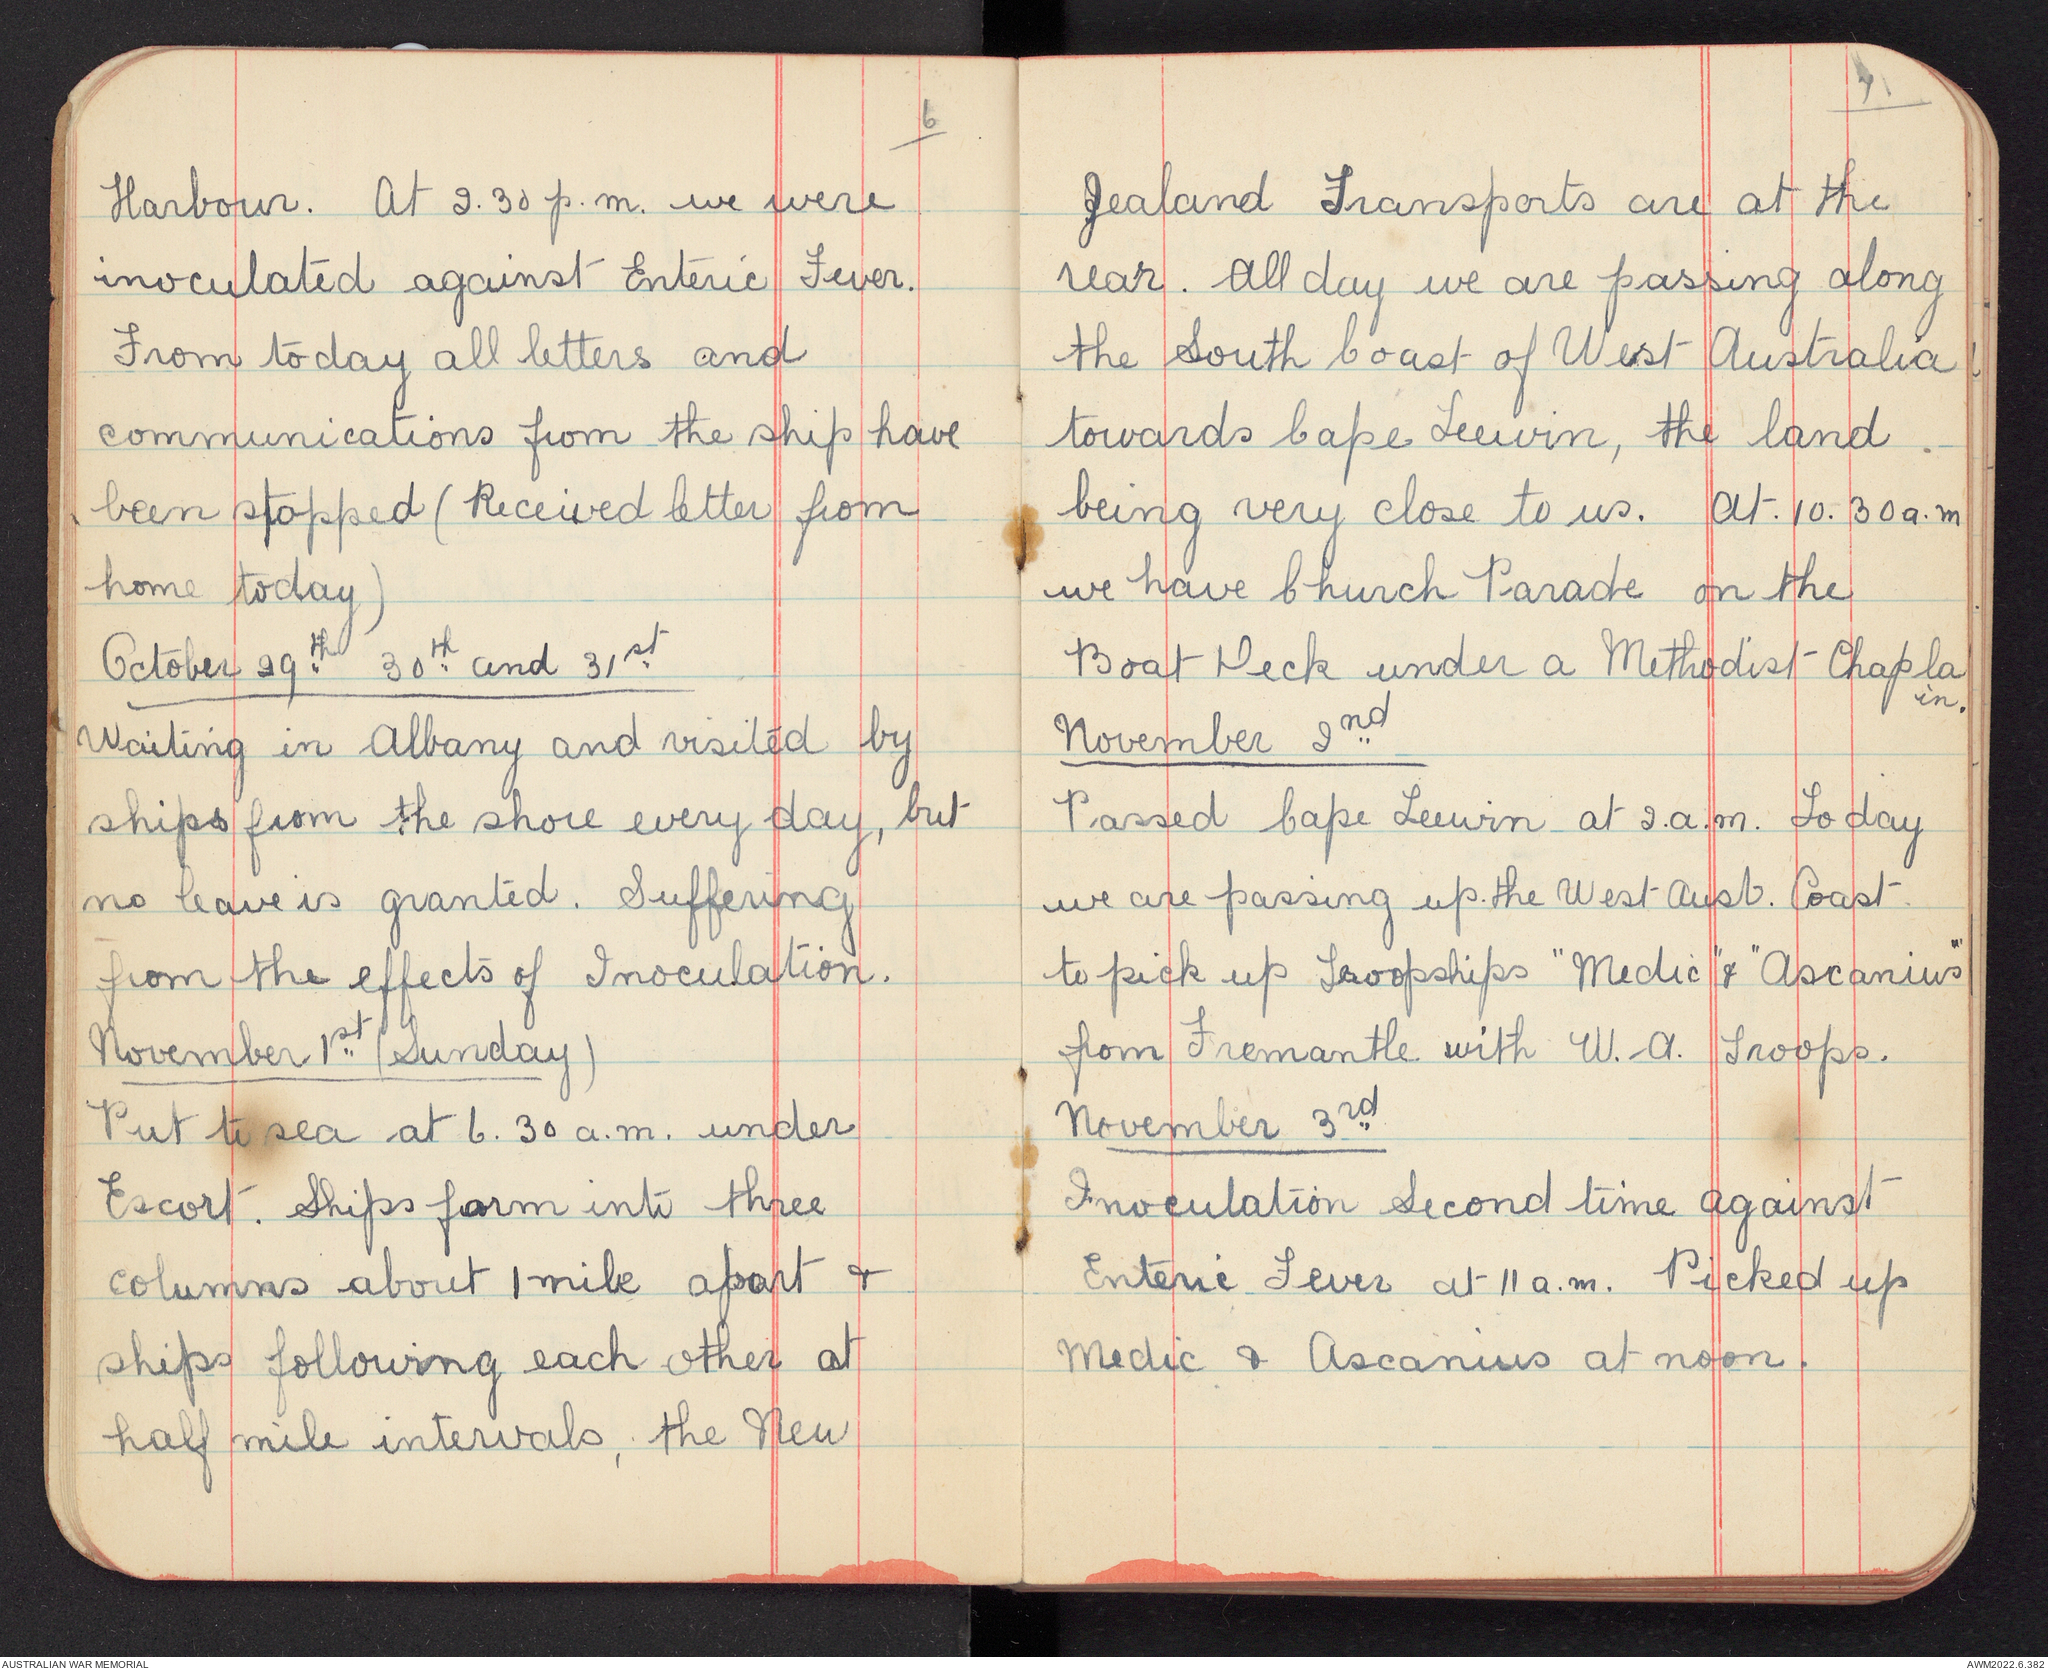 6
Harbour. At 2.30 p.m. we were
inoculated against Enteric Fever.
From today all letters and
communications from the ship have
been stopped (Received letter from
home today)
October 29th 30th and 31st
Waiting in Albany and visited by
ships from the shore every day, but
no leave is granted. Suffering
from the effects of Inoculation.
November 1st (Sunday)
Put to sea at 6.30 a.m. under
Escort. Ships form into three
columns about 1 mile apart &
ships following each other at
half mile intervals, the New
7
Zealand Transports are at the
rear. All day we are passing along
the South Coast of West Australia
towards Cape Leewin, the land
being very close to us. At 10.30 a.m
we have Church Parade on the
Boat Deck under a Methodist Chapla
in.
November 2nd
Passed Cape Leewin at 2.a.m. Today
we are passing up the West Aust. Coast
to pick up Troopships "Medic" & "Ascanius"
from Fremantle with W.A. Troops.
November 3rd
Inoculation Second time against
Enteric Fever at 11 a.m. Picked up
Medic & Ascanius at noon.
AUSTRALIAN WAR MEMORIAL
AWM2022.6.382